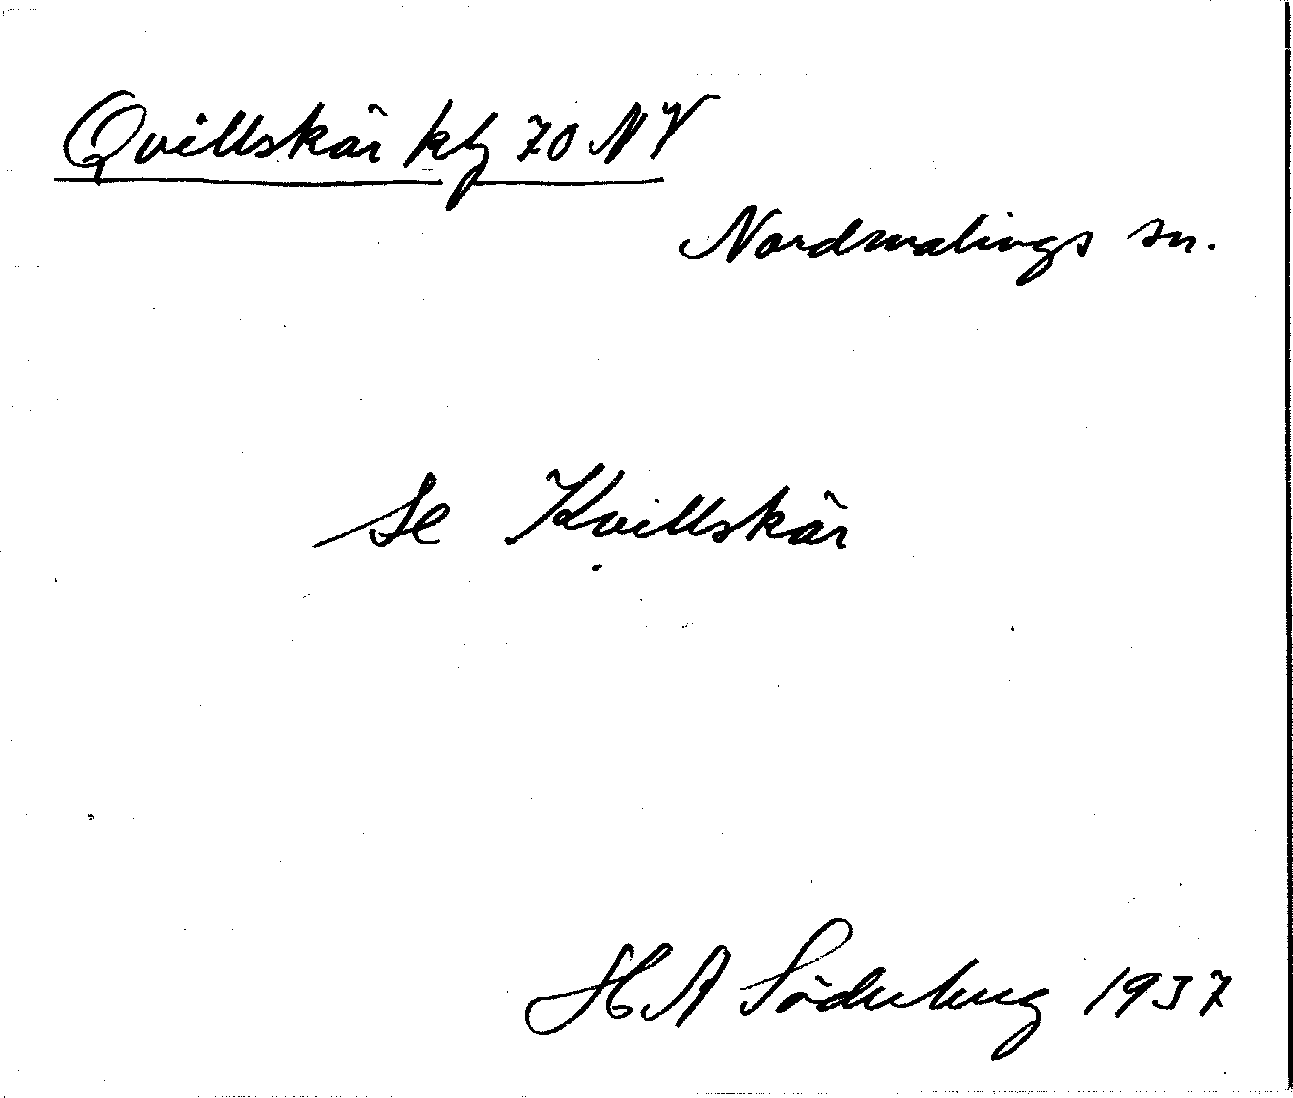 Qvillskär kbl 70 NV
Nordmalings sn.
se Kvillskär
H A Söderberg 1937